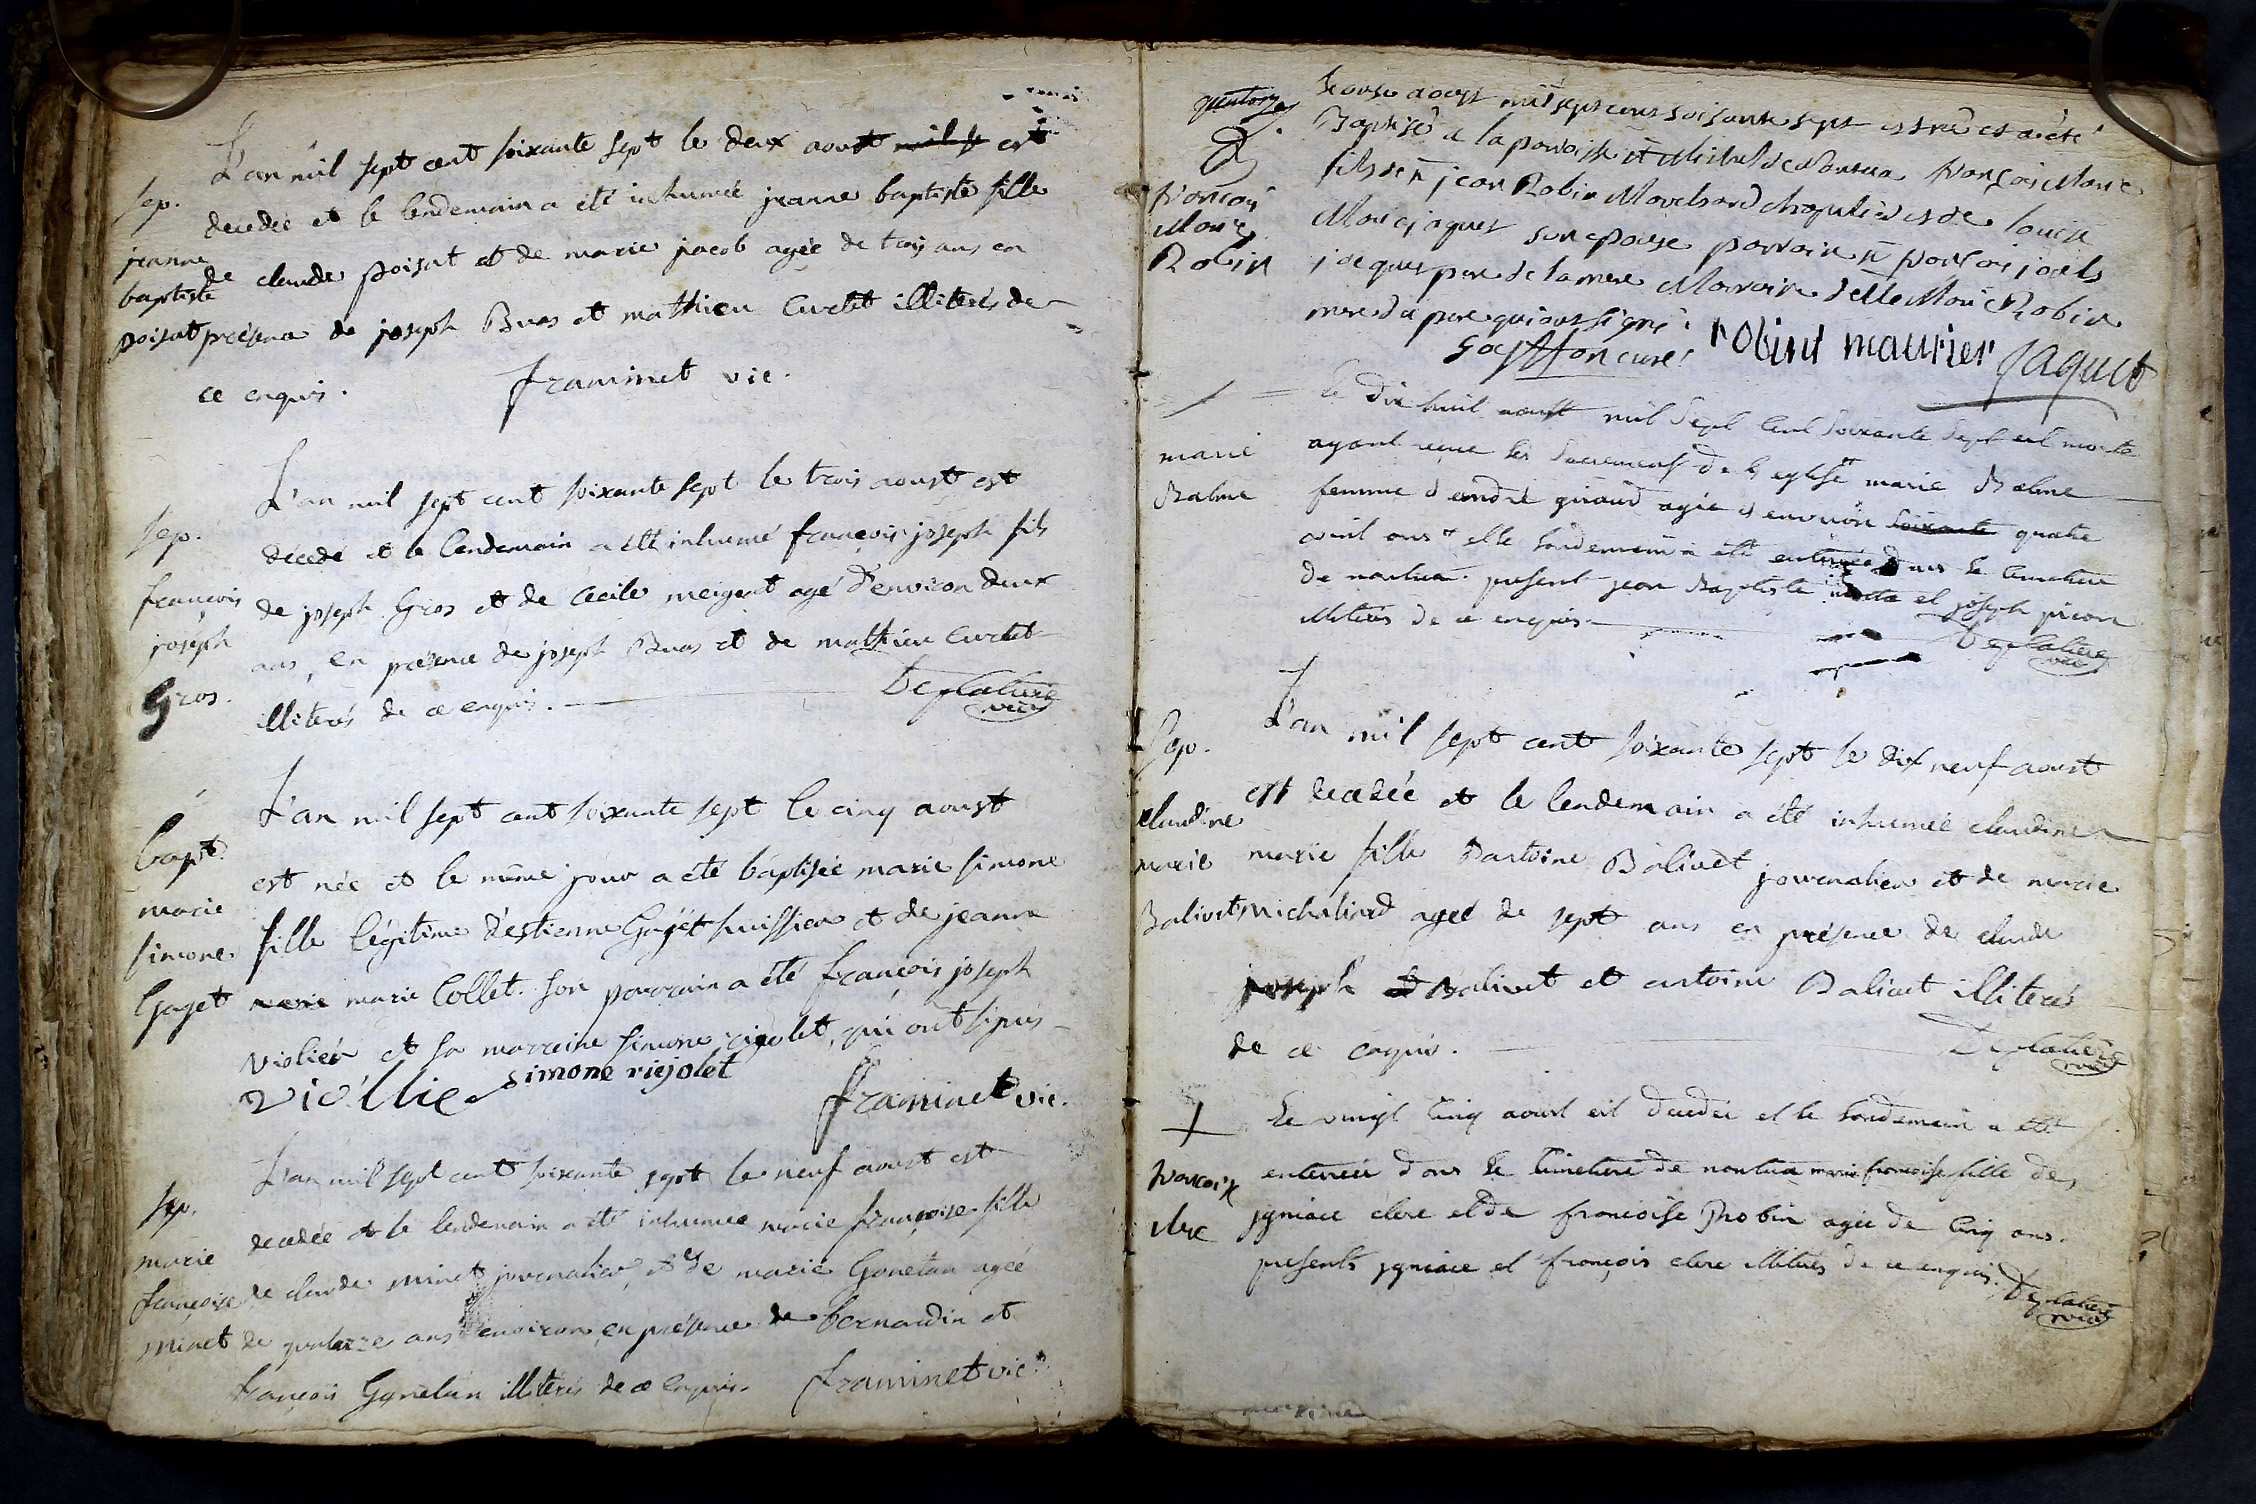 L'an mil sept cent soixante sept le deux aoust mil s est
Sep.
decedée et le lendemain a été inhumée jeanne baptiste fille
jeanne
baptiste
de claude poisat et de marie jacob agée de trois ans en
poisat
présence de joseph Buas et mathieu Curtet illiterés de
ce enquis. framinet vic.
L'an mil sept cent soixante sept le trois aoust est
Sep.
décedé et le lendemain a été inhumé françois joseph fils
françois
de joseph Gros et de Cecile meigent agé d'environ deux
joseph
ans, en présence de joseph Buas et de mathieu Curtet
Gros.
illiterés de ce enquis. Deplatiere
vic
L'an mil sept cent soixante sept le cinq aoust
bapt.
est née et le même jour a été baptisée marie simone
marie
simone
fille légitime d'estienne Gaget huissier et de jeanne
Gaget
marie marie Collet. son parrain a été françois joseph
violier et sa marraine simone rigolet, qui ont signés
viollier simone riejolet
framinet vic.
L'an mil sept cent soixante sept le neuf aoust est
Sep.
decedée et le lendemain a été inhumée marie françoise fille
marie
françoise
de claude minet journalier, et de marie Gonetan agée
minet
de quatorze ans environ, en présence de bernardin et
françois Gonetan illiterés de ce enquis. framinet vic.
quatorze
aoust mil sept cens soisante sept est né et a été
B.
Baptisé a la paroisse st Michel de Nantua françois Marie
françois
Marie
Robin
fils de sr jean Robin Marchand chapelier et de louise
Marie jaques son epouse parrain sr françois joaels
jaques pere de la mere Marraine delle Marie Robin
mere du pere qui ont signé.
curé robint maurier Jaquet
Le Dix huit aoust mil Sept Cent Soixante Sept est morte
marie
Balme
ayant reçue les Sacrements de l'eglise marie Balme
femme d'andré giraud agée d'environ soixante quatre
vint ans et elle landemain a été enterrée dans le Cimetiere
de nantua. present jean Baptiste et joseph picon
illiterés de ce enquis. Deplatiere
vic
L'an mil sept cent soixante sept le dix neuf aoust
Sep.
est decedée et le lendemain a été inhumée claudine
claudine
marie
marie fille d'antoine Balivet journalier et de marie
Balivet
Michaliard agée de sept ans en présence de claude
joseph Balivet et antoine Balivet illiterés
de ce enquis. Deplatiere
vic
Le vingt Cinq aoust est decedée et le landemain a été
enterrée dans le Cimetiere de nantua marie francoise fille de
francoise
clerc
jgniace clerc et de francoise Probin agée de Cinq ans.
presents jgniace et françois clerc illiterés de ce enquis. Deplatiere
vic